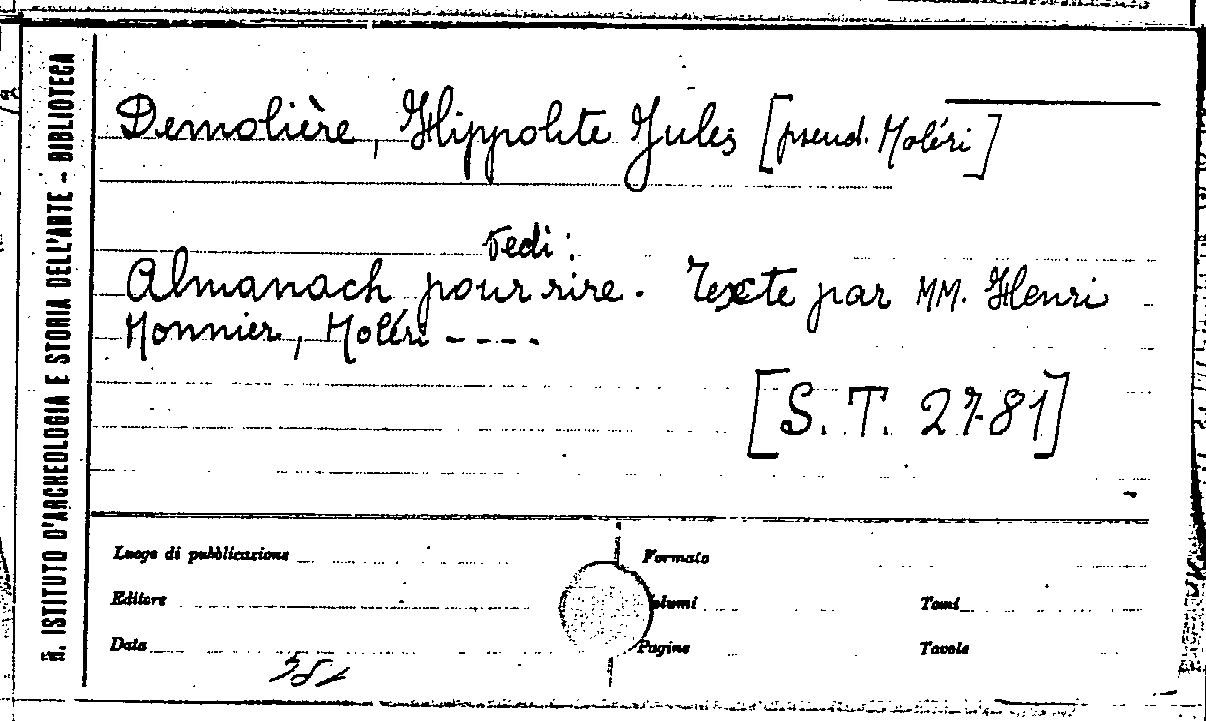 Demolière, Hippolite Jules [pseud. Moléri]
Vedi:
Almanach pour rire. Texte par MM. Henri
Monnier, Moléri ----
[S. T. 2781]
Luogo di pubblicazione
Formato
Editore
olumi
Tomi
Data
Pagine
Tavole
N. ISTITUTO D'ARCHEOLOGIA E STORIA DELL'ARTE - BIBLIOTECA